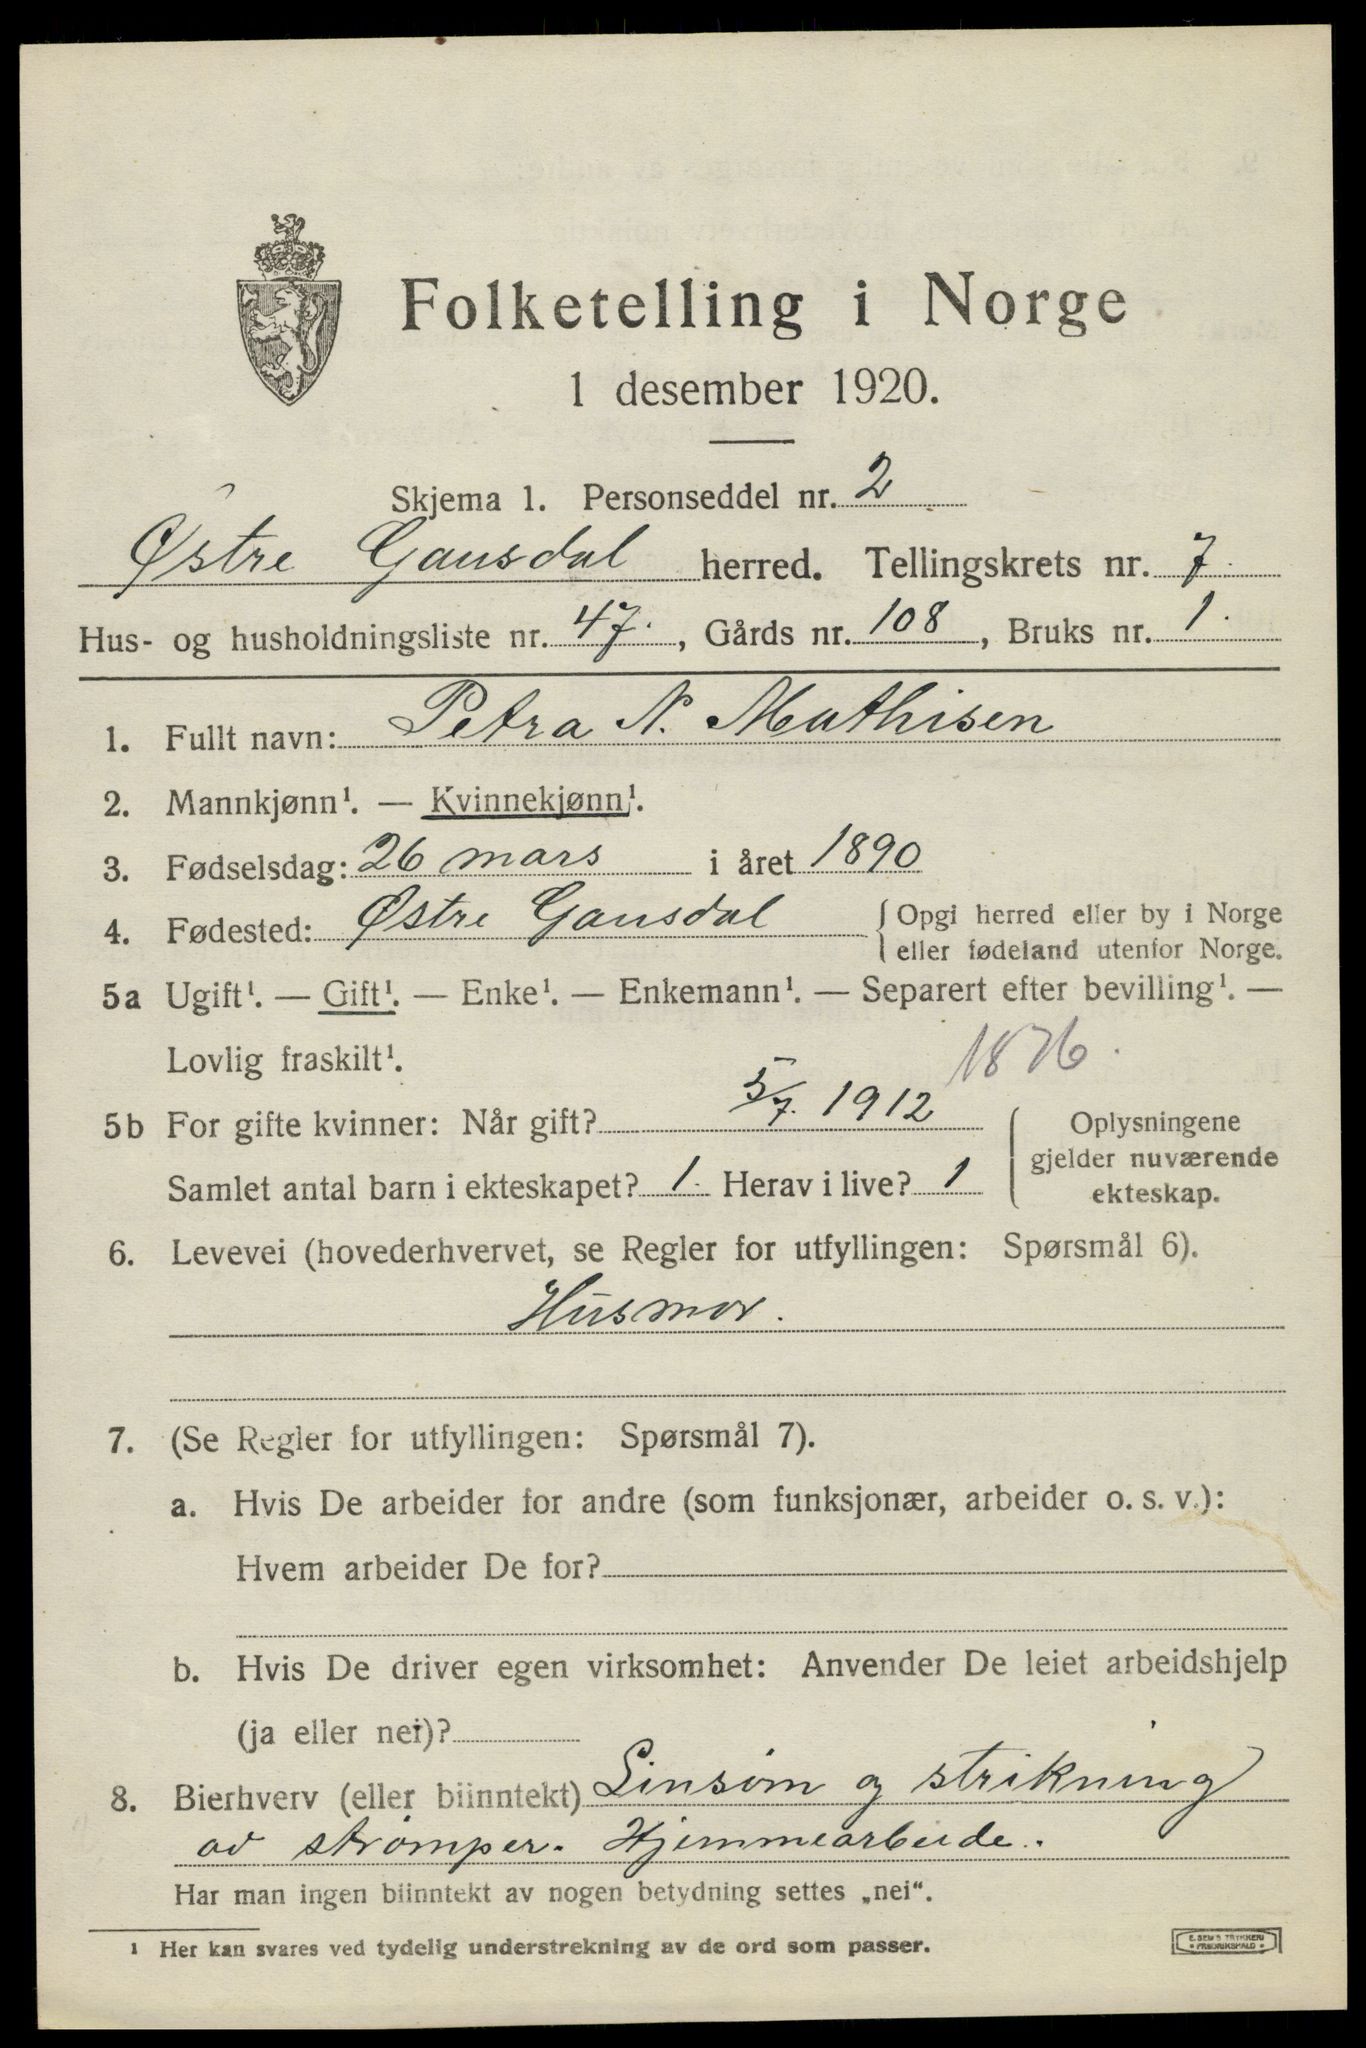 Folketelling i Norge
1 desember 1920.
Skjema 1. Personseddel nr. 2
Østre Gausdal herred. Tellingskrets nr. 7.
Hus- og husholdningsliste nr. 47., Gårds nr. 108, Bruks nr. 1.
1. Fullt navn: Petra N. Mathisen
2. Mannkjønn¹. — Kvinnekjønn¹.
3. Fødselsdag: 26 mars i året 1890
4. Fødested: Østre Gausdal { Opgi herred eller by i Norge
eller fødeland utenfor Norge.
5a Ugift¹. — Gift¹. — Enke¹. — Enkemann¹. — Separert efter bevilling¹. —
Lovlig fraskilt¹.
1876.
5b For gifte kvinner: Når gift? 5/7. 1912
Samlet antal barn i ekteskapet? 1. Herav i live? 1
Oplysningene
gjelder nuværende
ekteskap.
6. Levevei (hovederhvervet, se Regler for utfyllingen: Spørsmål 6).
Husmor.
7. (Se Regler for utfyllingen: Spørsmål 7).
a. Hvis De arbeider for andre (som funksjonær, arbeider o. s. v.):
Hvem arbeider De for?
b. Hvis De driver egen virksomhet: Anvender De leiet arbeidshjelp
(ja eller nei)?
8. Bierhverv (eller biinntekt) Linsøm og strikning
av strømper. Hjemmearbeide.
Har man ingen biinntekt av nogen betydning settes „nei“.
¹ Her kan svares ved tydelig understrekning av de ord som passer.
E. SEM'S TRYKKERI
* FREDRIKSHALD *